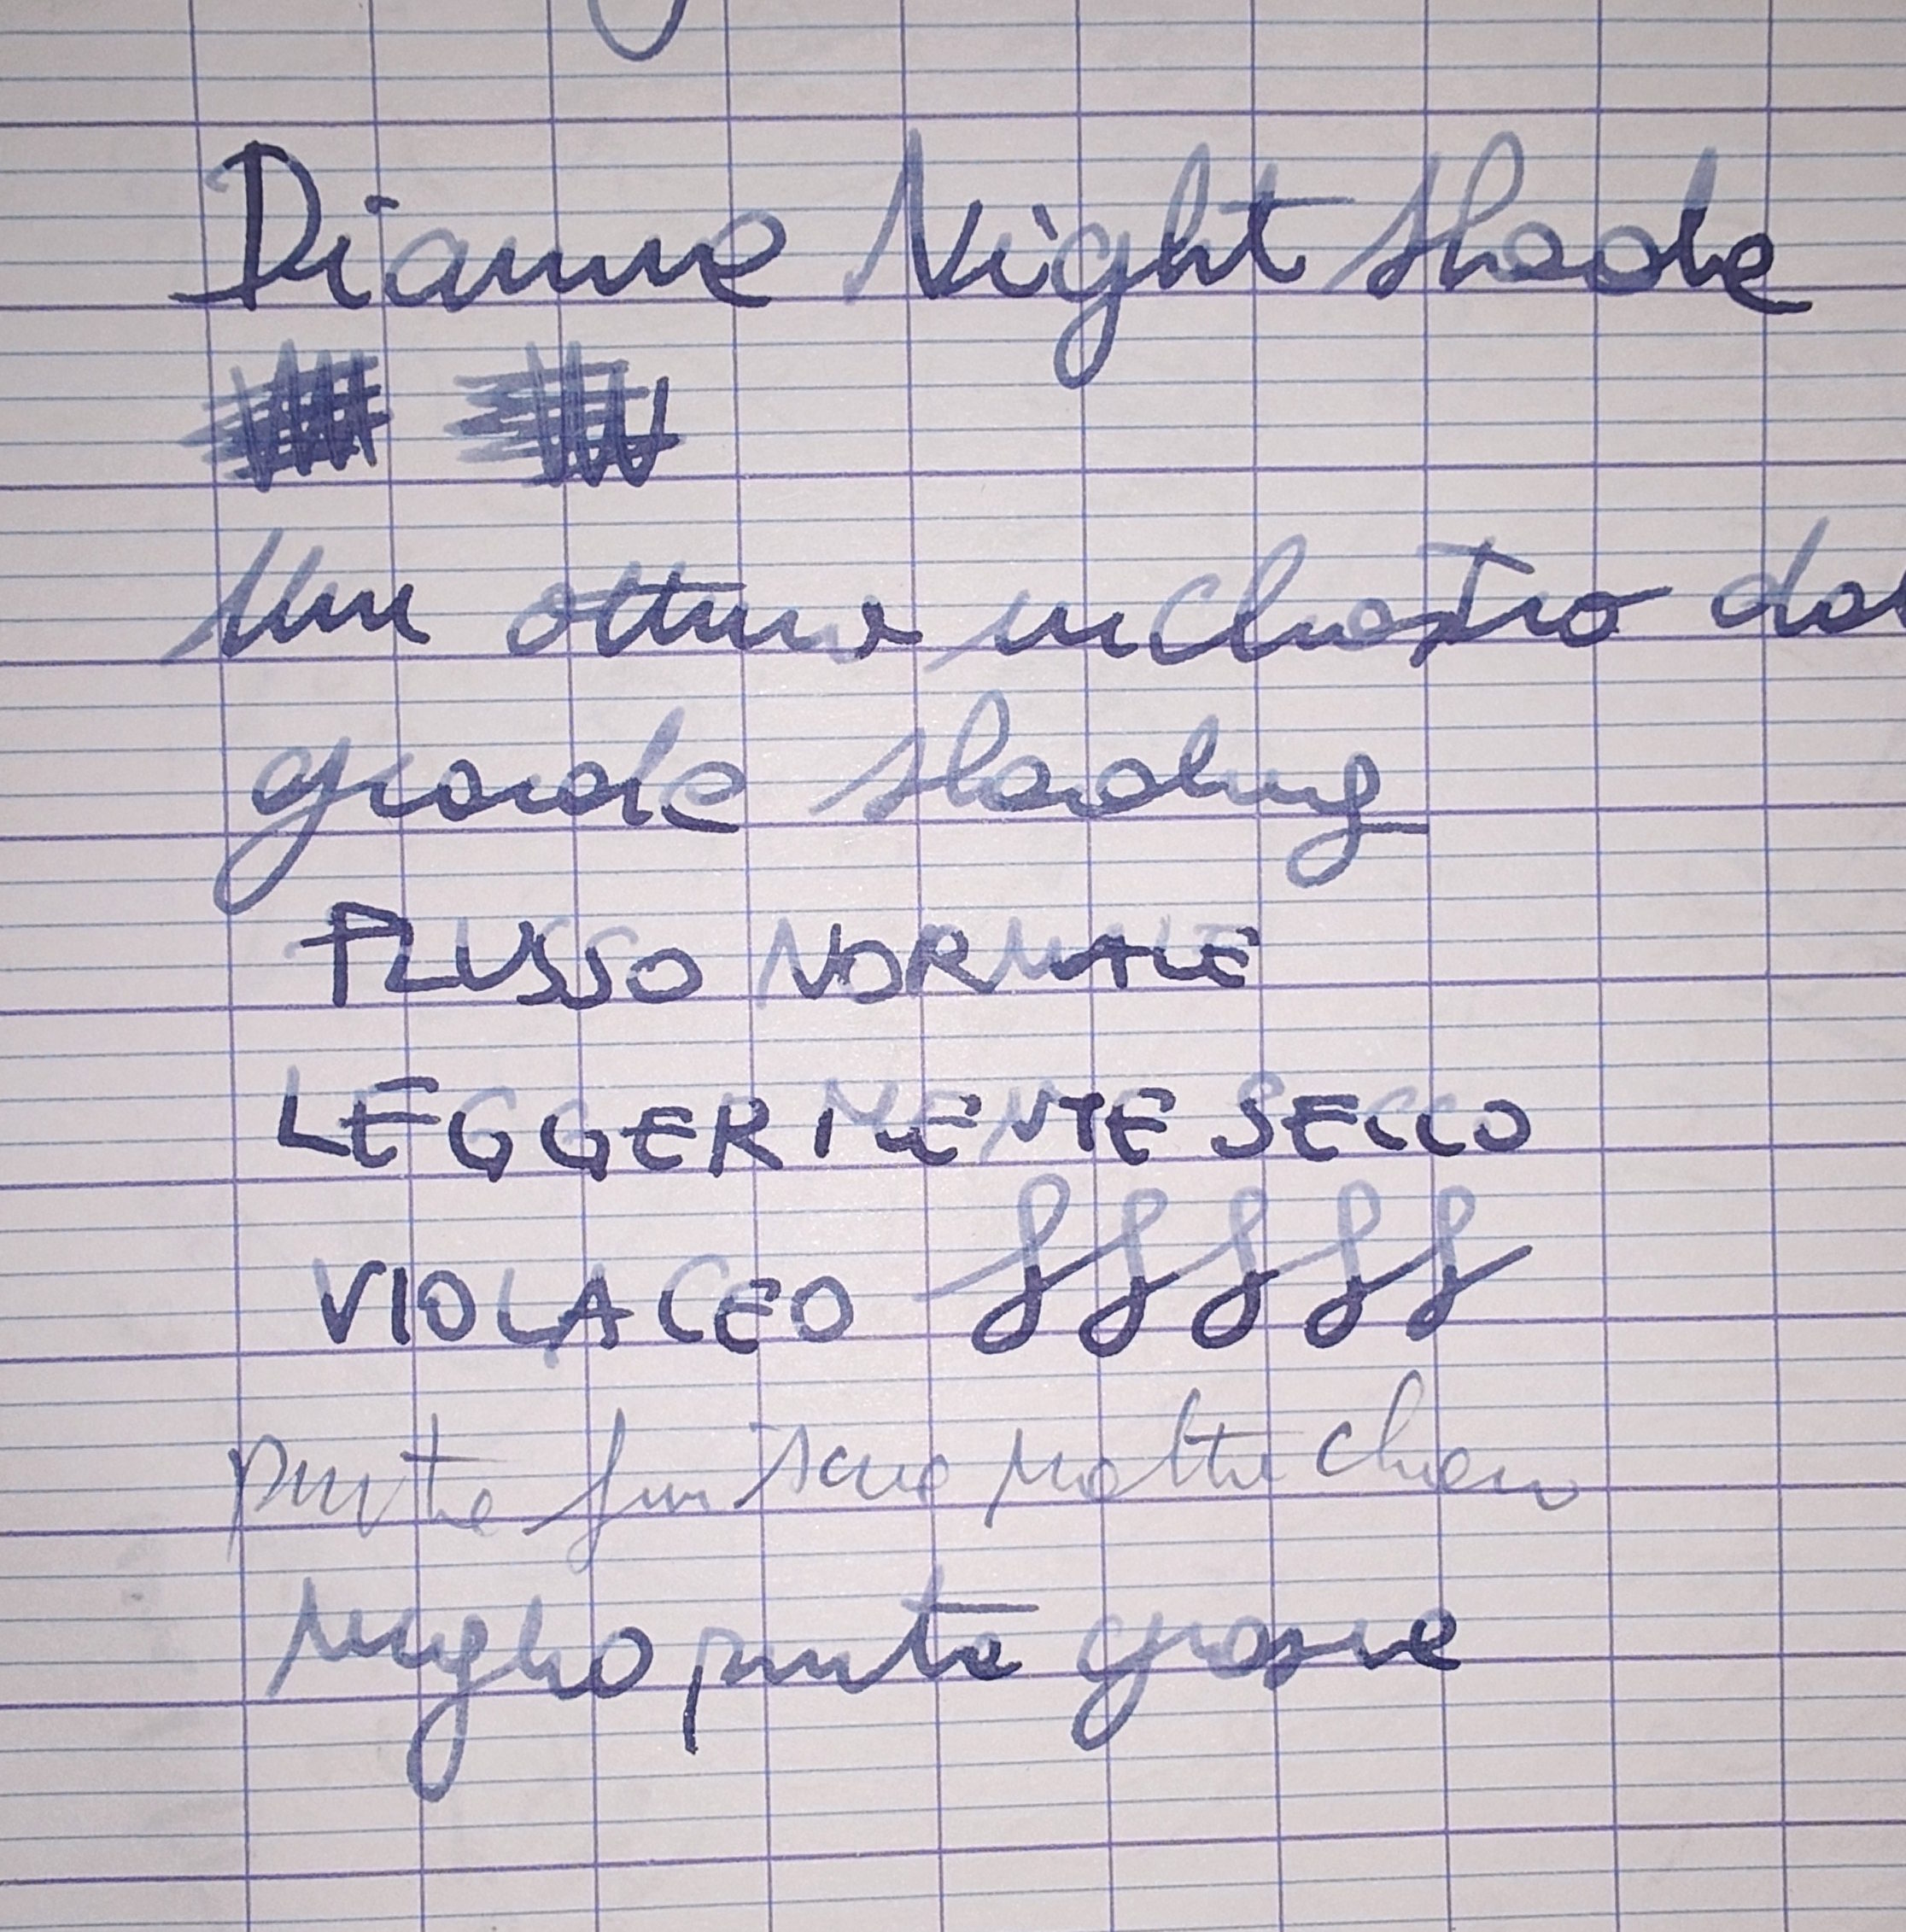 Dianne Night shade
Un ottimo inchiostro dal
grande shading
FLUSSO NORMALE
LEGGERMENTE SECCO
VIOLACEO
punte fini scure molto chiaro
meglio punte grosse